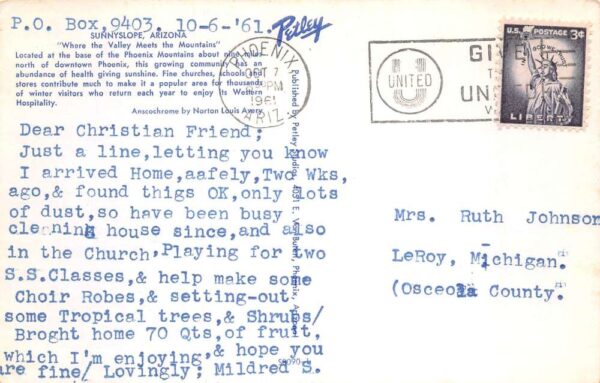 P.O. Box,9403. 10-6-'61.
Petley
SUNNYSLOPE, ARIZONA
"Where the Valley Meets the Mountains"
Located at the base of the Phoenix Mountains about nine miles
north of downtown Phoenix, this growing community has an
abundance of health giving sunshine. Fine churches, schools and
stores contribute much to make it a popular area for thousands
of winter visitors who return each year to enjoy its Western
Hospitality.
Anscochrome by Norton Louis Avery
PHOENIX
OCT 7
PM
1961
ARIZ.
UNITED
GIV
UN
U.S. POSTAGE 3¢
IN GOD WE TRUST
LIBERTY
Dear Christian Friend;
Just a line, letting you know
I arrived Home,aafely,Two Wks,
ago,& found thigs OK,only Lots
of dust,so have been busy
cleaning house since,and also
in the Church,Playing for two
S.S.Classes,& help make some
Choir Robes,& setting-out
some Tropical trees,& Shrubs/
Broght home 70 Qts,of fruit,
which I'm enjoying,& hope you
are fine/ Lovingly; Mildred S.
Published by Petley Studios, E. Washington, Phoenix, Arizona
Mrs. Ruth Johnson
LeRoy, Michigan.
(Osceola County.